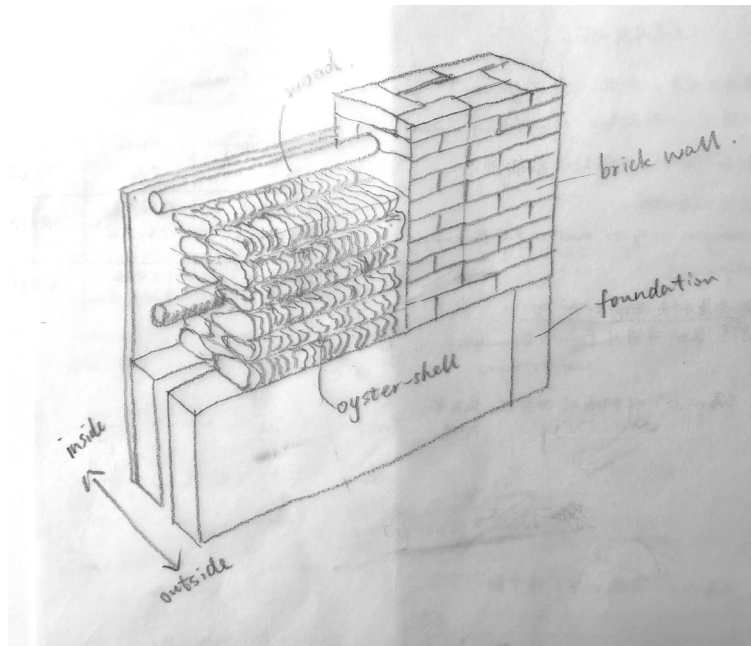 wood.
brick wall.
foundation
oyster-shell
inside
outside